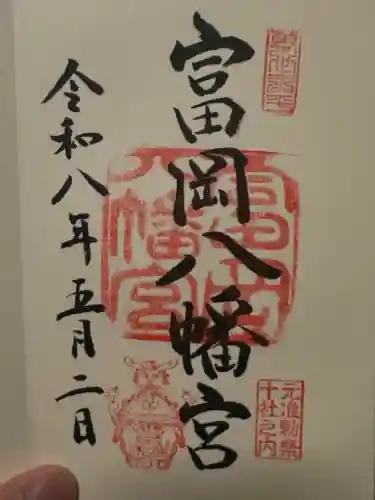 富岡八幡宮
令和八年五月二日
富岡八幡宮
元准勅祭
十社之内